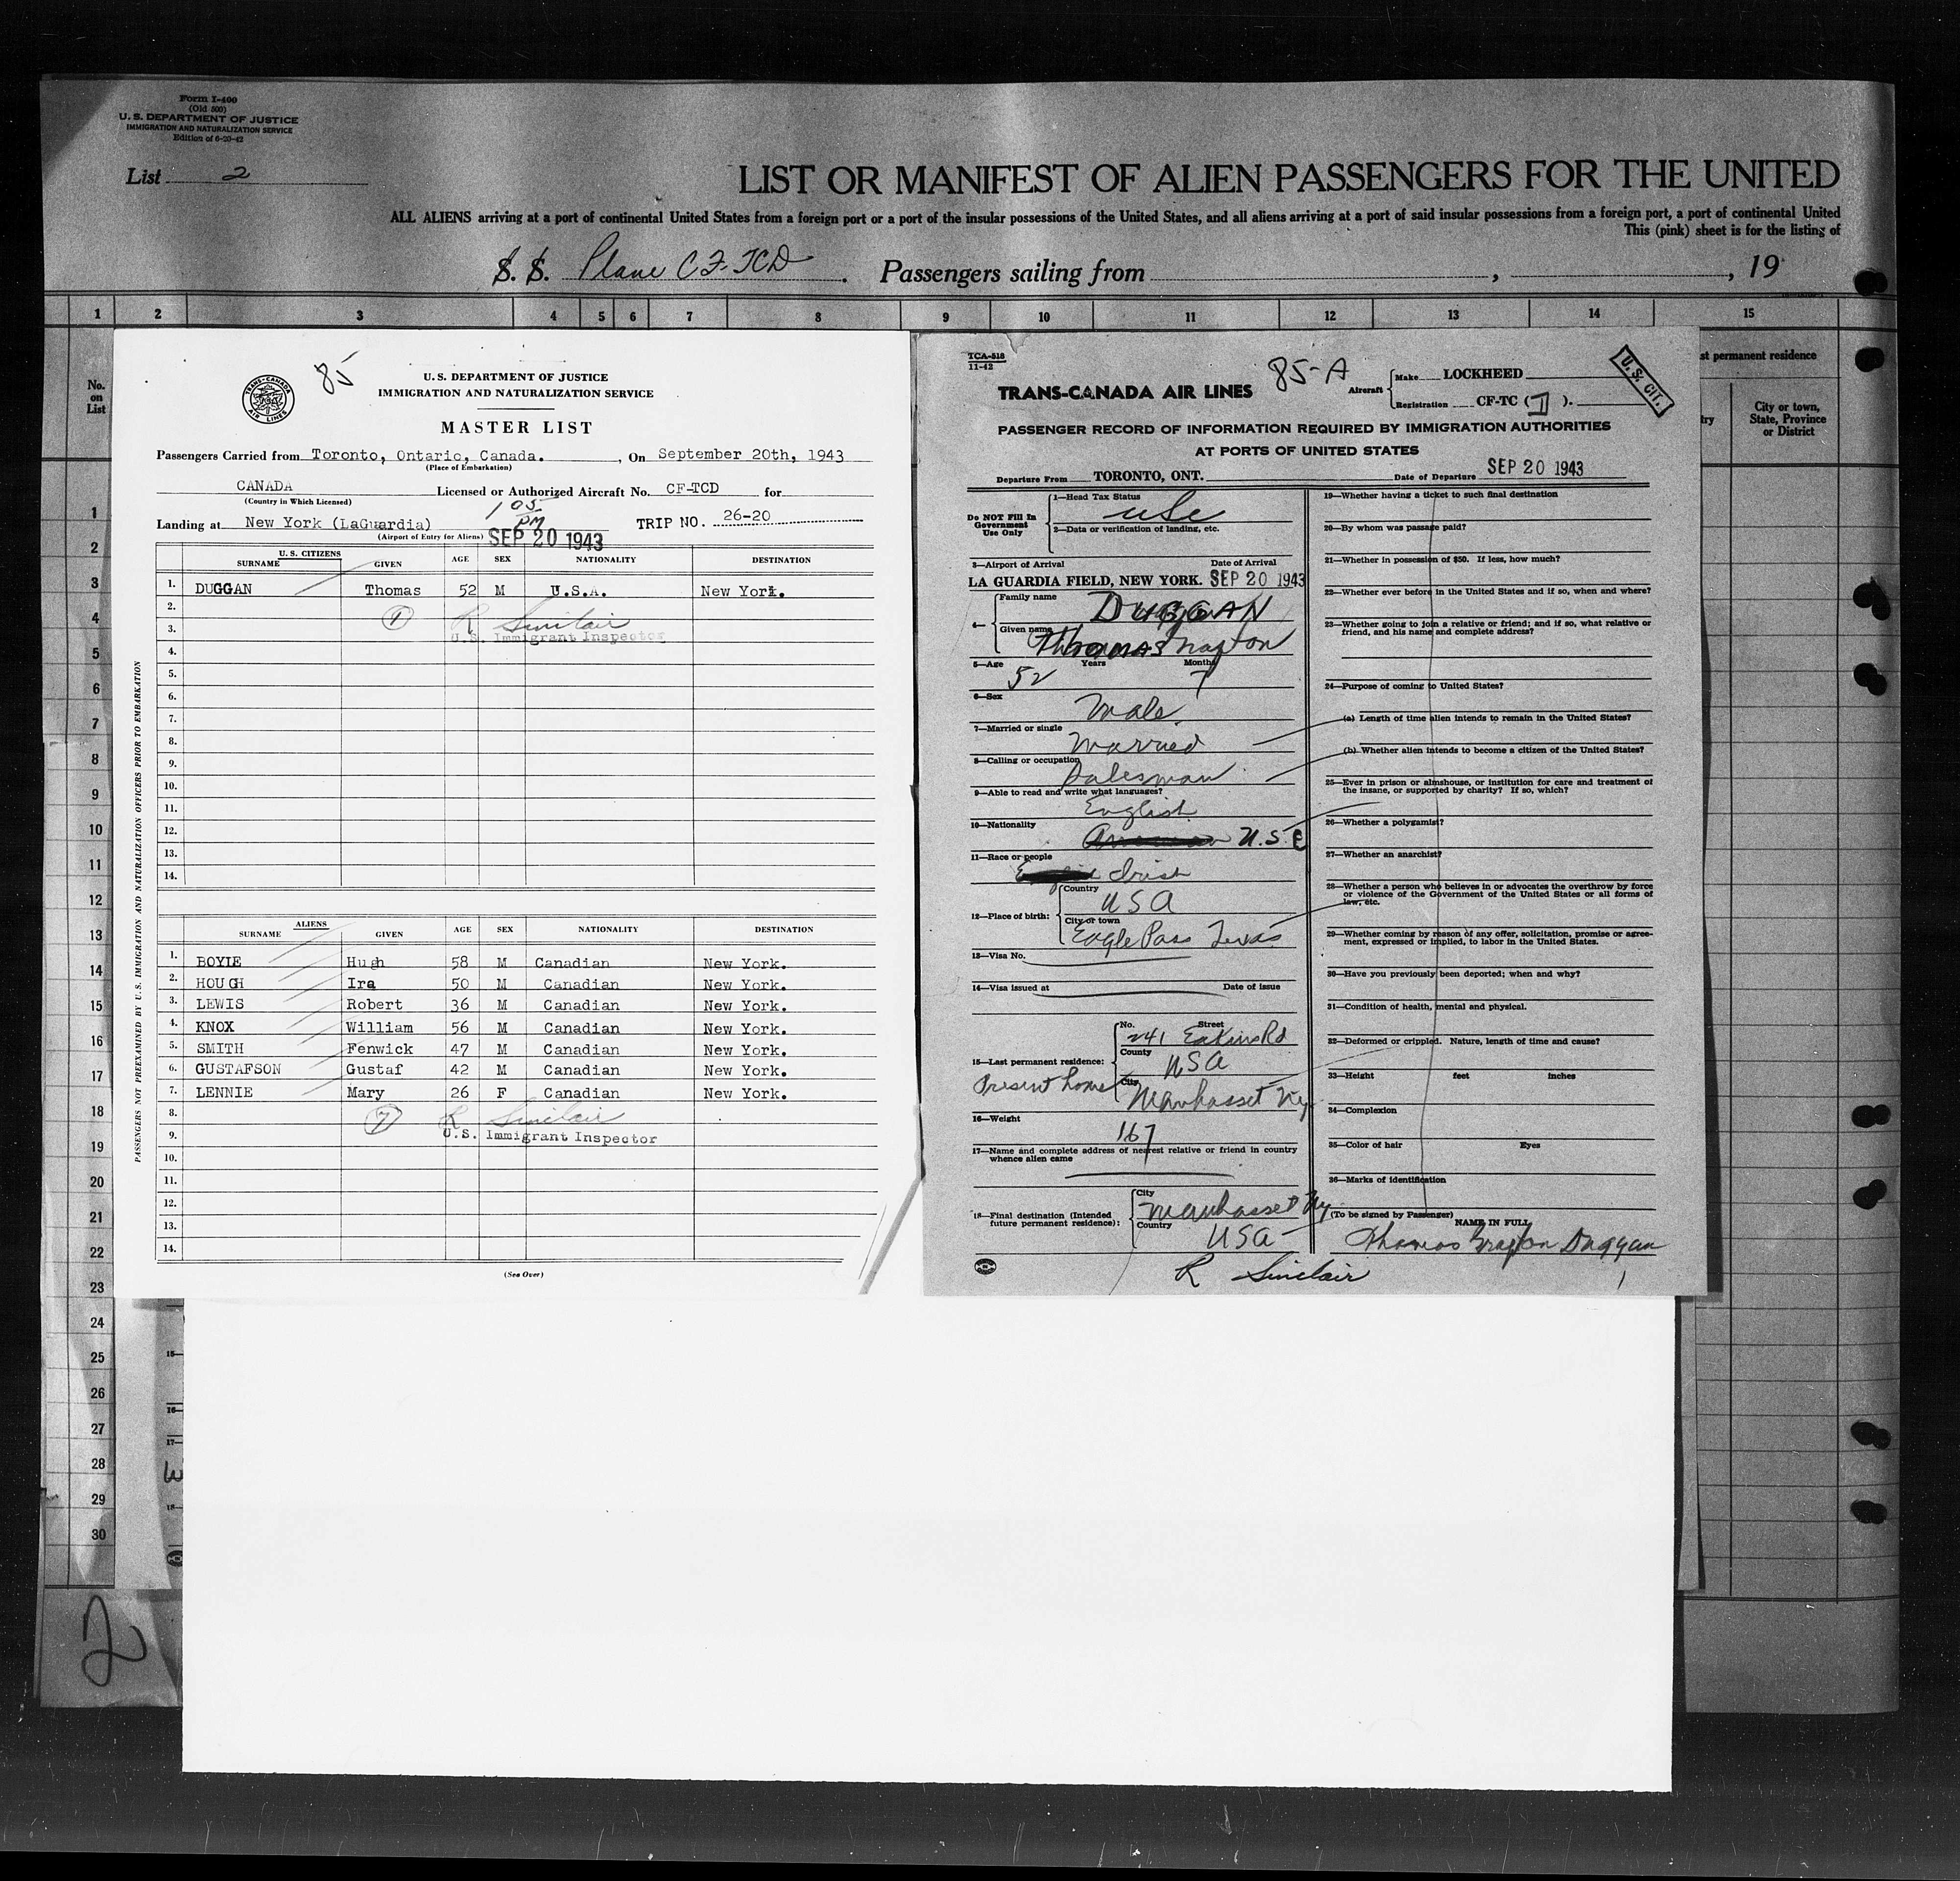 Form I-400
(Old 500)
U. S. DEPARTMENT OF JUSTICE
IMMIGRATION AND NATURALIZATION SERVICE
Edition of 6-20-42
List 2
LIST OR MANIFEST OF ALIEN PASSENGERS FOR THE UNITED
ALL ALIENS arriving at a port of continental United States from a foreign port or a port of the insular possessions of the United States, and all aliens arriving at a port of said insular possessions from a foreign port, a port of continental United
This (pink) sheet is for the listing of
S. S. Plane CF-TCD . Passengers sailing from , , 19
1 2 3 4 5 6 7 8 9 10 11 12 13 14 15
No. on List
st permanent residence
try
City or town, State, Province or District
1
2
3
4
5
6
7
8
9
10
11
12
13
14
15
16
17
18
19
20
21
22
23
24
25
26
27
28
29
30
15—
16—
17—
18—
2
TRANS-CANADA AIR LINES
85
U. S. DEPARTMENT OF JUSTICE
IMMIGRATION AND NATURALIZATION SERVICE
MASTER LIST
Passengers Carried from Toronto, Ontario, Canada. , On September 20th, 1943
(Place of Embarkation)
CANADA Licensed or Authorized Aircraft No. CF-TCD for
(Country in Which Licensed)
1 05 PM
Landing at New York (LaGuardia) TRIP NO. 26-20
(Airport of Entry for Aliens) SEP 20 1943
U. S. CITIZENS
SURNAME GIVEN AGE SEX NATIONALITY DESTINATION
1. DUGGAN Thomas 52 M U.S.A. New York.
2. 1 R Sinclair
3. U.S. Immigrant Inspector
4.
5.
6.
7.
8.
9.
10.
11.
12.
13.
14.
ALIENS
SURNAME GIVEN AGE SEX NATIONALITY DESTINATION
1. BOYLE Hugh 58 M Canadian New York.
2. HOUGH Ira 50 M Canadian New York.
3. LEWIS Robert 36 M Canadian New York.
4. KNOX William 56 M Canadian New York.
5. SMITH Fenwick 47 M Canadian New York.
6. GUSTAFSON Gustaf 42 M Canadian New York.
7. LENNIE Mary 26 F Canadian New York.
8. 7 R Sinclair
9. U.S. Immigrant Inspector
10.
11.
12.
13.
14.
(See Over)
PASSENGERS NOT PREEXAMINED BY U.S. IMMIGRATION AND NATURALIZATION OFFICERS PRIOR TO EMBARKATION
TCA-518
11-42
85-A
TRANS-CANADA AIR LINES
Aircraft Make LOCKHEED
Registration CF-TC (D ).
U.S. CIT.
PASSENGER RECORD OF INFORMATION REQUIRED BY IMMIGRATION AUTHORITIES
AT PORTS OF UNITED STATES
Departure From TORONTO, ONT. Date of Departure SEP 20 1943
Do NOT Fill In Government Use Only
1—Head Tax Status
USC
2—Data or verification of landing, etc.
3—Airport of Arrival Date of Arrival
LA GUARDIA FIELD, NEW YORK. SEP 20 1943
4— Family name DUGGAN
Given name Thomas Grafton
5—Age 52 Years Months 7
6—Sex Male
7—Married or single Married
8—Calling or occupation Salesman
9—Able to read and write what languages?
English
10—Nationality
U.S.C
11—Race or people
Irish
12—Place of birth: Country USA
City or town Eagle Pass Texas
13—Visa No.
14—Visa issued at Date of issue
15—Last permanent residence: No. Street 241 Eakins Rd
County USA
Present home City Manhasset Ny
16—Weight 167
17—Name and complete address of nearest relative or friend in country whence alien came
18—Final destination (Intended future permanent residence): City Manhasset Ny
Country USA
19—Whether having a ticket to such final destination
20—By whom was passage paid?
21—Whether in possession of $50. If less, how much?
22—Whether ever before in the United States and if so, when and where?
23—Whether going to join a relative or friend; and if so, what relative or friend, and his name and complete address?
24—Purpose of coming to United States?
(a) Length of time alien intends to remain in the United States?
(b) Whether alien intends to become a citizen of the United States?
25—Ever in prison or almshouse, or institution for care and treatment of the insane, or supported by charity? If so, which?
26—Whether a polygamist?
27—Whether an anarchist?
28—Whether a person who believes in or advocates the overthrow by force or violence of the Government of the United States or all forms of law, etc.
29—Whether coming by reason of any offer, solicitation, promise or agreement, expressed or implied, to labor in the United States.
30—Have you previously been deported; when and why?
31—Condition of health, mental and physical.
32—Deformed or crippled. Nature, length of time and cause?
33—Height feet inches
34—Complexion
35—Color of hair Eyes
36—Marks of identification
(To be signed by Passenger) NAME IN FULL
Thomas Grafton Duggan
R Sinclair